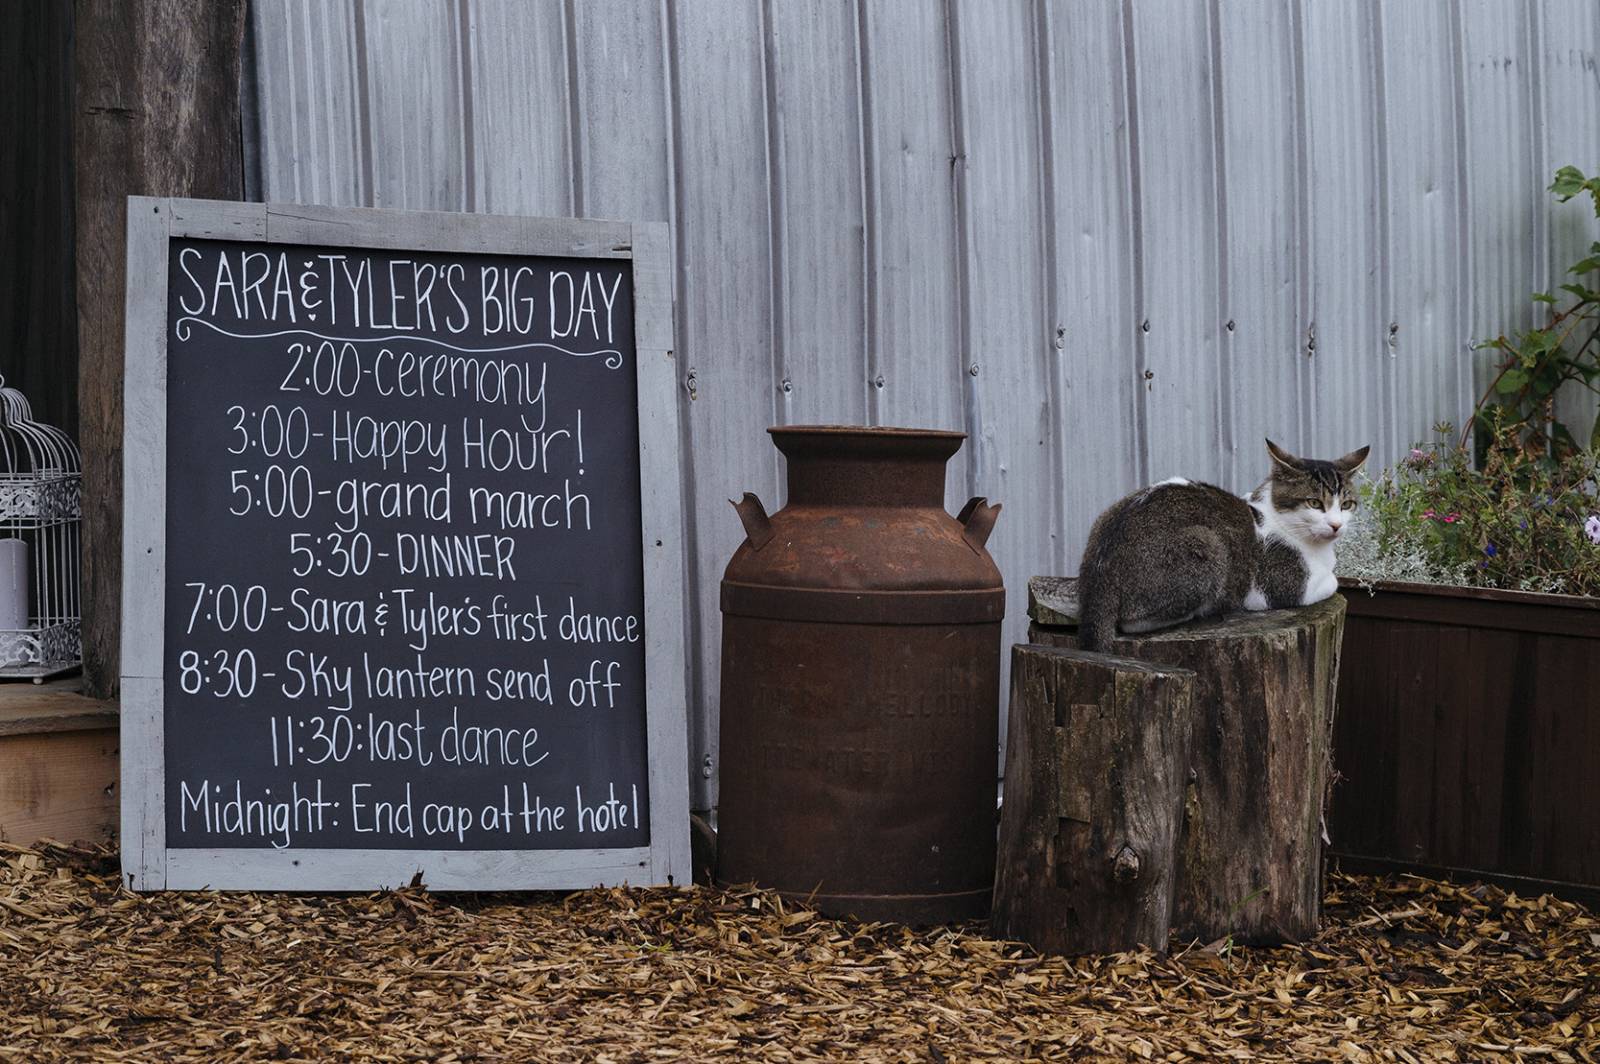 SARA & TYLER'S BIG DAY
2:00-ceremony
3:00-Happy Hour!
5:00-grand march
5:30-DINNER
7:00-Sara & Tyler's first dance
8:30-Sky lantern send off
11:30:last dance
Midnight: End cap at the hotel